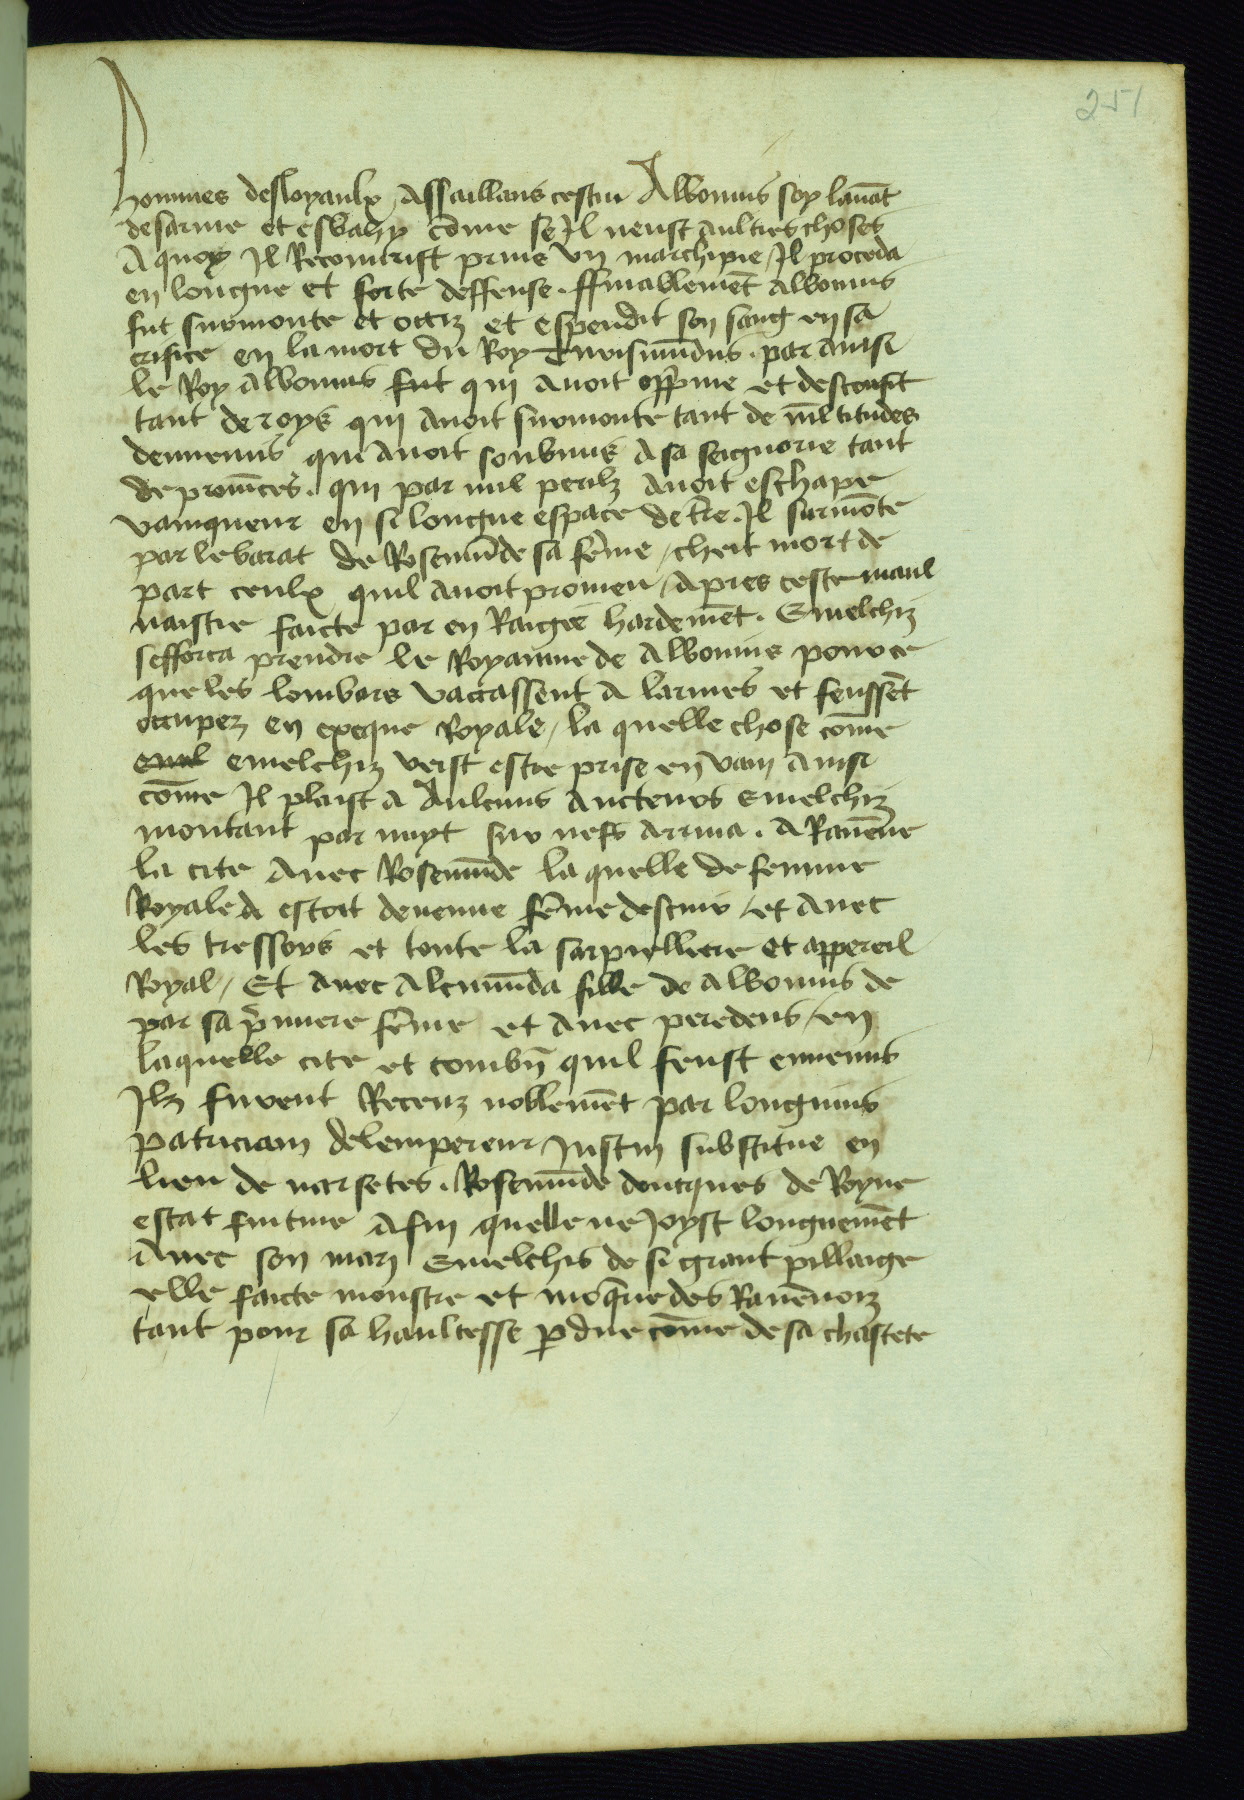 251
hommes desloyaulx Assaillans cestui Albouins soy lauāt
desarme et esbahy cōme se Il neust aultres choses
A quoy Il Recourust prins vn marchipie / Il proceda
en longue et forte deffense . ffinablemēt albouins
fut surmonte et occiz et espendit son sang en sa
crifice en la mort du Roy Turismūdus . par ainsi
le Roy albouins fut qui auoit opp̄me et desconfit
tant de roys qui auoit surmonte tant de m̄ltitudes
dennemis qui auoit soubmis A sa seignorie tant
de prouīces . qui par mil perilz auoit eschape
vainqueur en si longue espace de tr̄e . Il surmōte
par le barat de Rosemūde sa fēme / cheit mort de
part ceulx quil auoit promeu / Apres ceste maul
uaistie faicte par en Raigee hardemēt . Emelchiz
sefforca prendre le Royaume de Albouins pour ce
que les lombars vacassent a larmes et feussēt
occupez en exeque Royale / la quelle chose cōme
emelchiz veist estre prise en vain ainsi
cōme Il plaist a Aulcuns aucteurs Emelchiz
montant par nuyt sur nefs arriua . A Rauēne
la cite auec Rosemūde la quelle de femme
Royale estoit deuenue fēme descuir / et auec
les tressors et toute la sarpilliere et appereil
Royal / Et auec Alcmūda fille de albouins de
par sa p̄miere fēme et auec peredeus / en
laquelle cite et combn̄ quil feust ennemis
Ilz furent Receuz noblemēt par longinus
patriciam delempereur Justin substitue en
lieu de narsetes . Rosemūde doncques de Royne
estat fuitiue Afin quelle ne Joyst longuemēt
Auec son mary Emelchis de si grant pillaige
elle faicte monstre et moq̄rie des Rauēnoiz
tant pour sa haultesse p̱due cōme de sa chastete